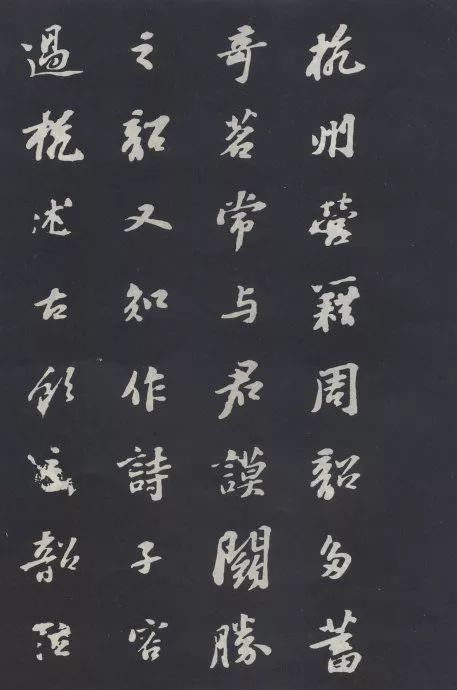 杭州營籍周韶多蓄
奇茗常与君謨鬭勝
之韶又知作詩子容
過杭述古飲韶泣